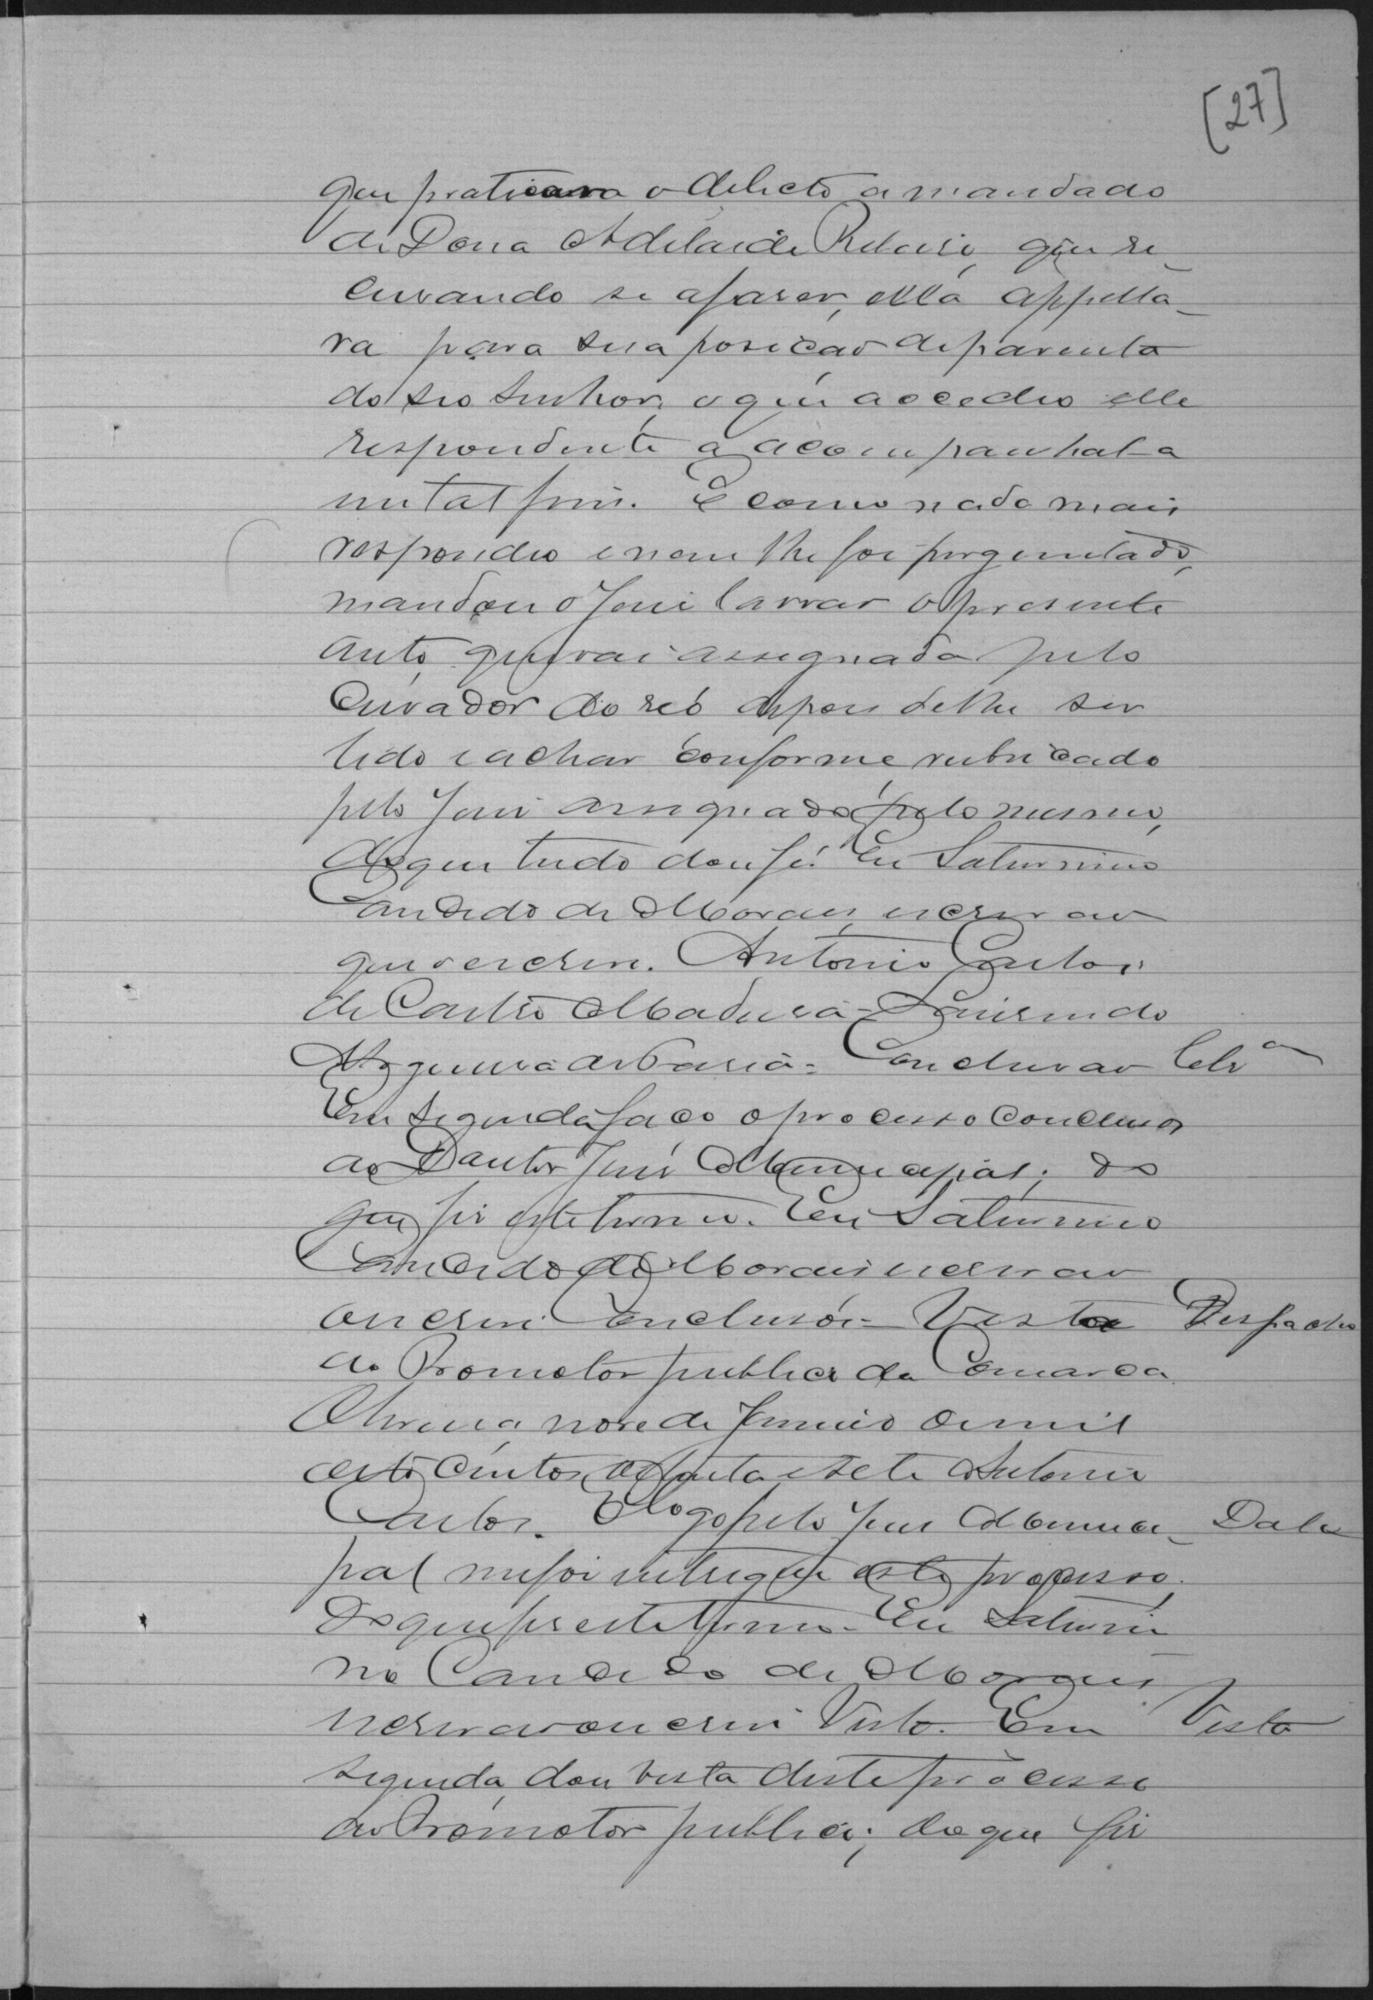 [27]
que praticara o delicto a mandado
de Dona Adelaide Ribeiro, que re-
cusando se afaser, ella appella-
va para sua posição de parenta
do seo Senhor, o que accedeo elle
respondente a acompanhal-a
em tal fim. E como nada mais
respondeo e nem lhe foi perguntado,
mandou o Juis lavrar o presente
auto, que vai assegnado pelo
Curador do reó depois de lhe ser
lido e achar conforme, rubricado
pelo Juis assignado pelo mesmo,
do que tudo dou fé. Eu Saturnino
Candido de Moraes, escrivão
que o escrevi. Antonio Carlos
de Castro Madeira =
Nogueira = Concluzão
Em seguida faço o processo conclusos
ao Doutor Juis Municipal; do
que fis este termo. Eu Saturnino
Candido de Moraes escrivão
o escrevi Conclusos = Vista Despacho
ao Promotor publico da Comarca.
nove de Junho de mil
oito centos oitenta e sete Antonio
Carlos. E logo pelo Juis Munici- Data
pal me foi entregue este processo,
do que fis este termo. Eu Saturni
no Candido de Moraes
escrivão o escrevi Visto. Em Vista
seguida, dou vista deste processo
ao Promotor publico; do que fis